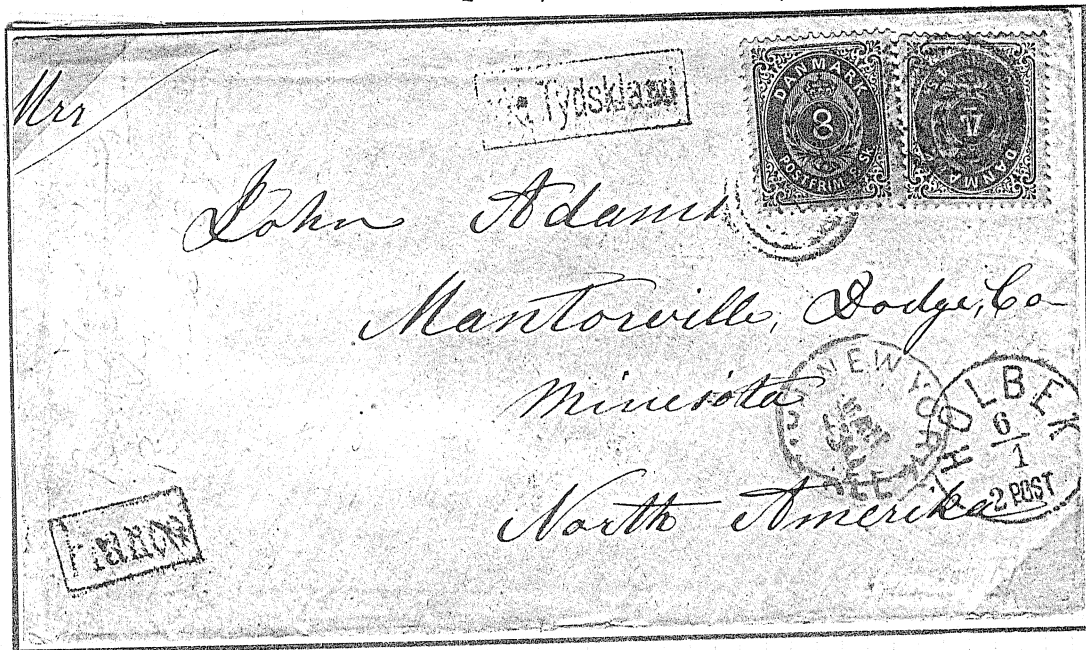 Mrr
via Tydskland
DANMARK
8
POSTFRIM. S. SK.
DANMA
4
John Adams
Mantorville, Dodge, Co-
Minesota
North Amerika
NEW YORK
HOLBEK
6
1
2 POST
Franco